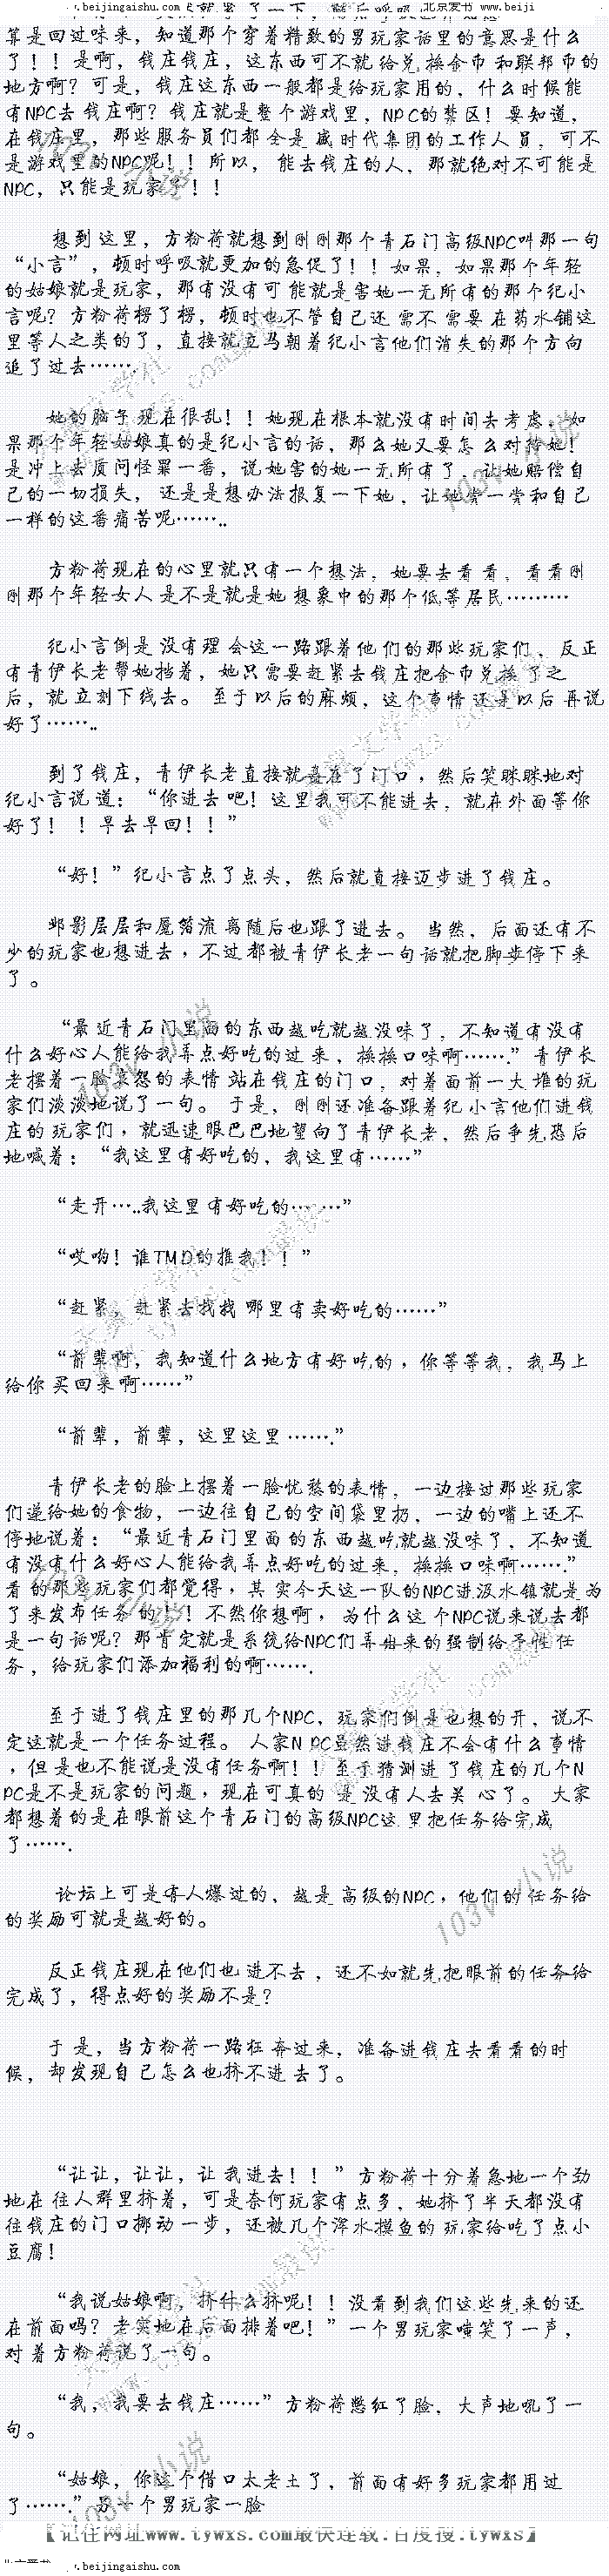 .beijingaishu.com
北京爱书 www.beiji
算是回过味来，知道那个穿着精致的男玩家话里的意思是什么
了！！是啊，钱庄钱庄，这东西可不就给兑换金币和联邦币的
地方啊？可是，钱庄这东西一般都是给玩家用的，什么时候能
有NPC去钱庄啊？钱庄就是整个游戏里，NPC的禁区！要知道，
在钱庄里，那些服务员们都全是盛时代集团的工作人员，可不
是游戏里的NPC呢！！所以，能去钱庄的人，那就绝对不可能是
NPC，只能是玩家了！！
想到这里，方粉荷就想到刚刚那个青石门高级NPC叫那一句
“小言”，顿时呼吸就更加的急促了！！如果，如果那个年轻
的姑娘就是玩家，那有没有可能就是害她一无所有的那个纪小
言呢？方粉荷楞了楞，顿时也不管自己还需不需要在药水铺这
里等人之类的了，直接就立马朝着纪小言他们消失的那个方向
追了过去…….
她的脑子现在很乱！！她现在根本就没有时间去考虑，如
果那个年轻姑娘真的是纪小言的话，那么她又要怎么对待她！
是冲上去质问怪罪一番，说她害的她一无所有了，让她赔偿自
己的一切损失，还是是想办法报复一下她，让她尝一尝和自己
一样的这番痛苦呢……..
方粉荷现在的心里就只有一个想法，她要去看看，看看刚
刚那个年轻女人是不是就是她想象中的那个低等居民………
纪小言倒是没有理会这一路跟着他们的那些玩家们，反正
有青伊长老帮她挡着，她只需要赶紧去钱庄把金币兑换了之
后，就立刻下线去。至于以后的麻烦，这个事情还是以后再说
好了……..
到了钱庄，青伊长老直接就靠在了门口，然后笑眯眯地对
纪小言说道：“你进去吧！这里我可不能进去，就在外面等你
好了！！早去早回！！”
“好！”纪小言点了点头，然后就直接迈步进了钱庄。
邺影层层和魇笛流离随后也跟了进去。当然，后面还有不
少的玩家也想进去，不过都被青伊长老一句话就把脚步停下来
了。
“最近青石门里面的东西越吃就越没味了，不知道有没有
什么好心人能给我弄点好吃的过来，换换口味啊…….”青伊长
老摆着一脸哀怨的表情站在钱庄的门口，对着面前一大堆的玩
家们淡淡地说了一句。于是，刚刚还准备跟着纪小言他们进钱
庄的玩家们，就迅速眼巴巴地望向了青伊长老，然后争先恐后
地喊着：“我这里有好吃的，我这里有……”
“走开…..我这里有好吃的………”
“哎哟！谁TMD的推我！！”
“赶紧，赶紧去找找哪里有卖好吃的……”
“前辈啊，我知道什么地方有好吃的，你等等我，我马上
给你买回来啊……”
“前辈，前辈，这里这里…….”
青伊长老的脸上摆着一脸忧愁的表情，一边接过那些玩家
们递给她的食物，一边往自己的空间袋里扔，一边的嘴上还不
停地说着：“最近青石门里面的东西越吃就越没味了，不知道
有没有什么好心人能给我弄点好吃的过来，换换口味啊…….”
看的那些玩家们都觉得，其实今天这一队的NPC进汲水镇就是为
了来发布任务的！！不然你想啊，为什么这个NPC说来说去都
是一句话呢？那肯定就是系统给NPC们弄出来的强制给予性任
务，给玩家们添加福利的啊…….
至于进了钱庄里的那几个NPC，玩家们倒是也想的开，说不
定这就是一个任务过程。人家NPC虽然进钱庄不会有什么事情
，但是也不能说是没有任务啊！！至于猜测进了钱庄的几个N
PC是不是玩家的问题，现在可真的是没有人去关心了。大家
都想着的是在眼前这个青石门的高级NPC这里把任务给完成
了…….
论坛上可是有人爆过的，越是高级的NPC，他们的任务给
的奖励可就是越好的。
反正钱庄现在他们也进不去，还不如就先把眼前的任务给
完成了，得点好的奖励不是？
于是，当方粉荷一路狂奔过来，准备进钱庄去看看的时
候，却发现自己怎么也挤不进去了。
“让让，让让，让我进去！！”方粉荷十分着急地一个劲
地在往人群里挤着，可是奈何玩家有点多，她挤了半天都没有
往钱庄的门口挪动一步，还被几个浑水摸鱼的玩家给吃了点小
豆腐！
“我说姑娘啊，挤什么挤呢！！没看到我们这些先来的还
在前面吗？老实地在后面排着吧！”一个男玩家嗤笑了一声，
对着方粉荷说了一句。
“我，我要去钱庄……”方粉荷憋红了脸，大声地吼了一
句。
“姑娘，你这个借口太老土了，前面有好多玩家都用过
了…….”另一个男玩家一脸
【记住网址www.tywxs.com最快连载.百度搜.tywxs】
.beijingaishu.com